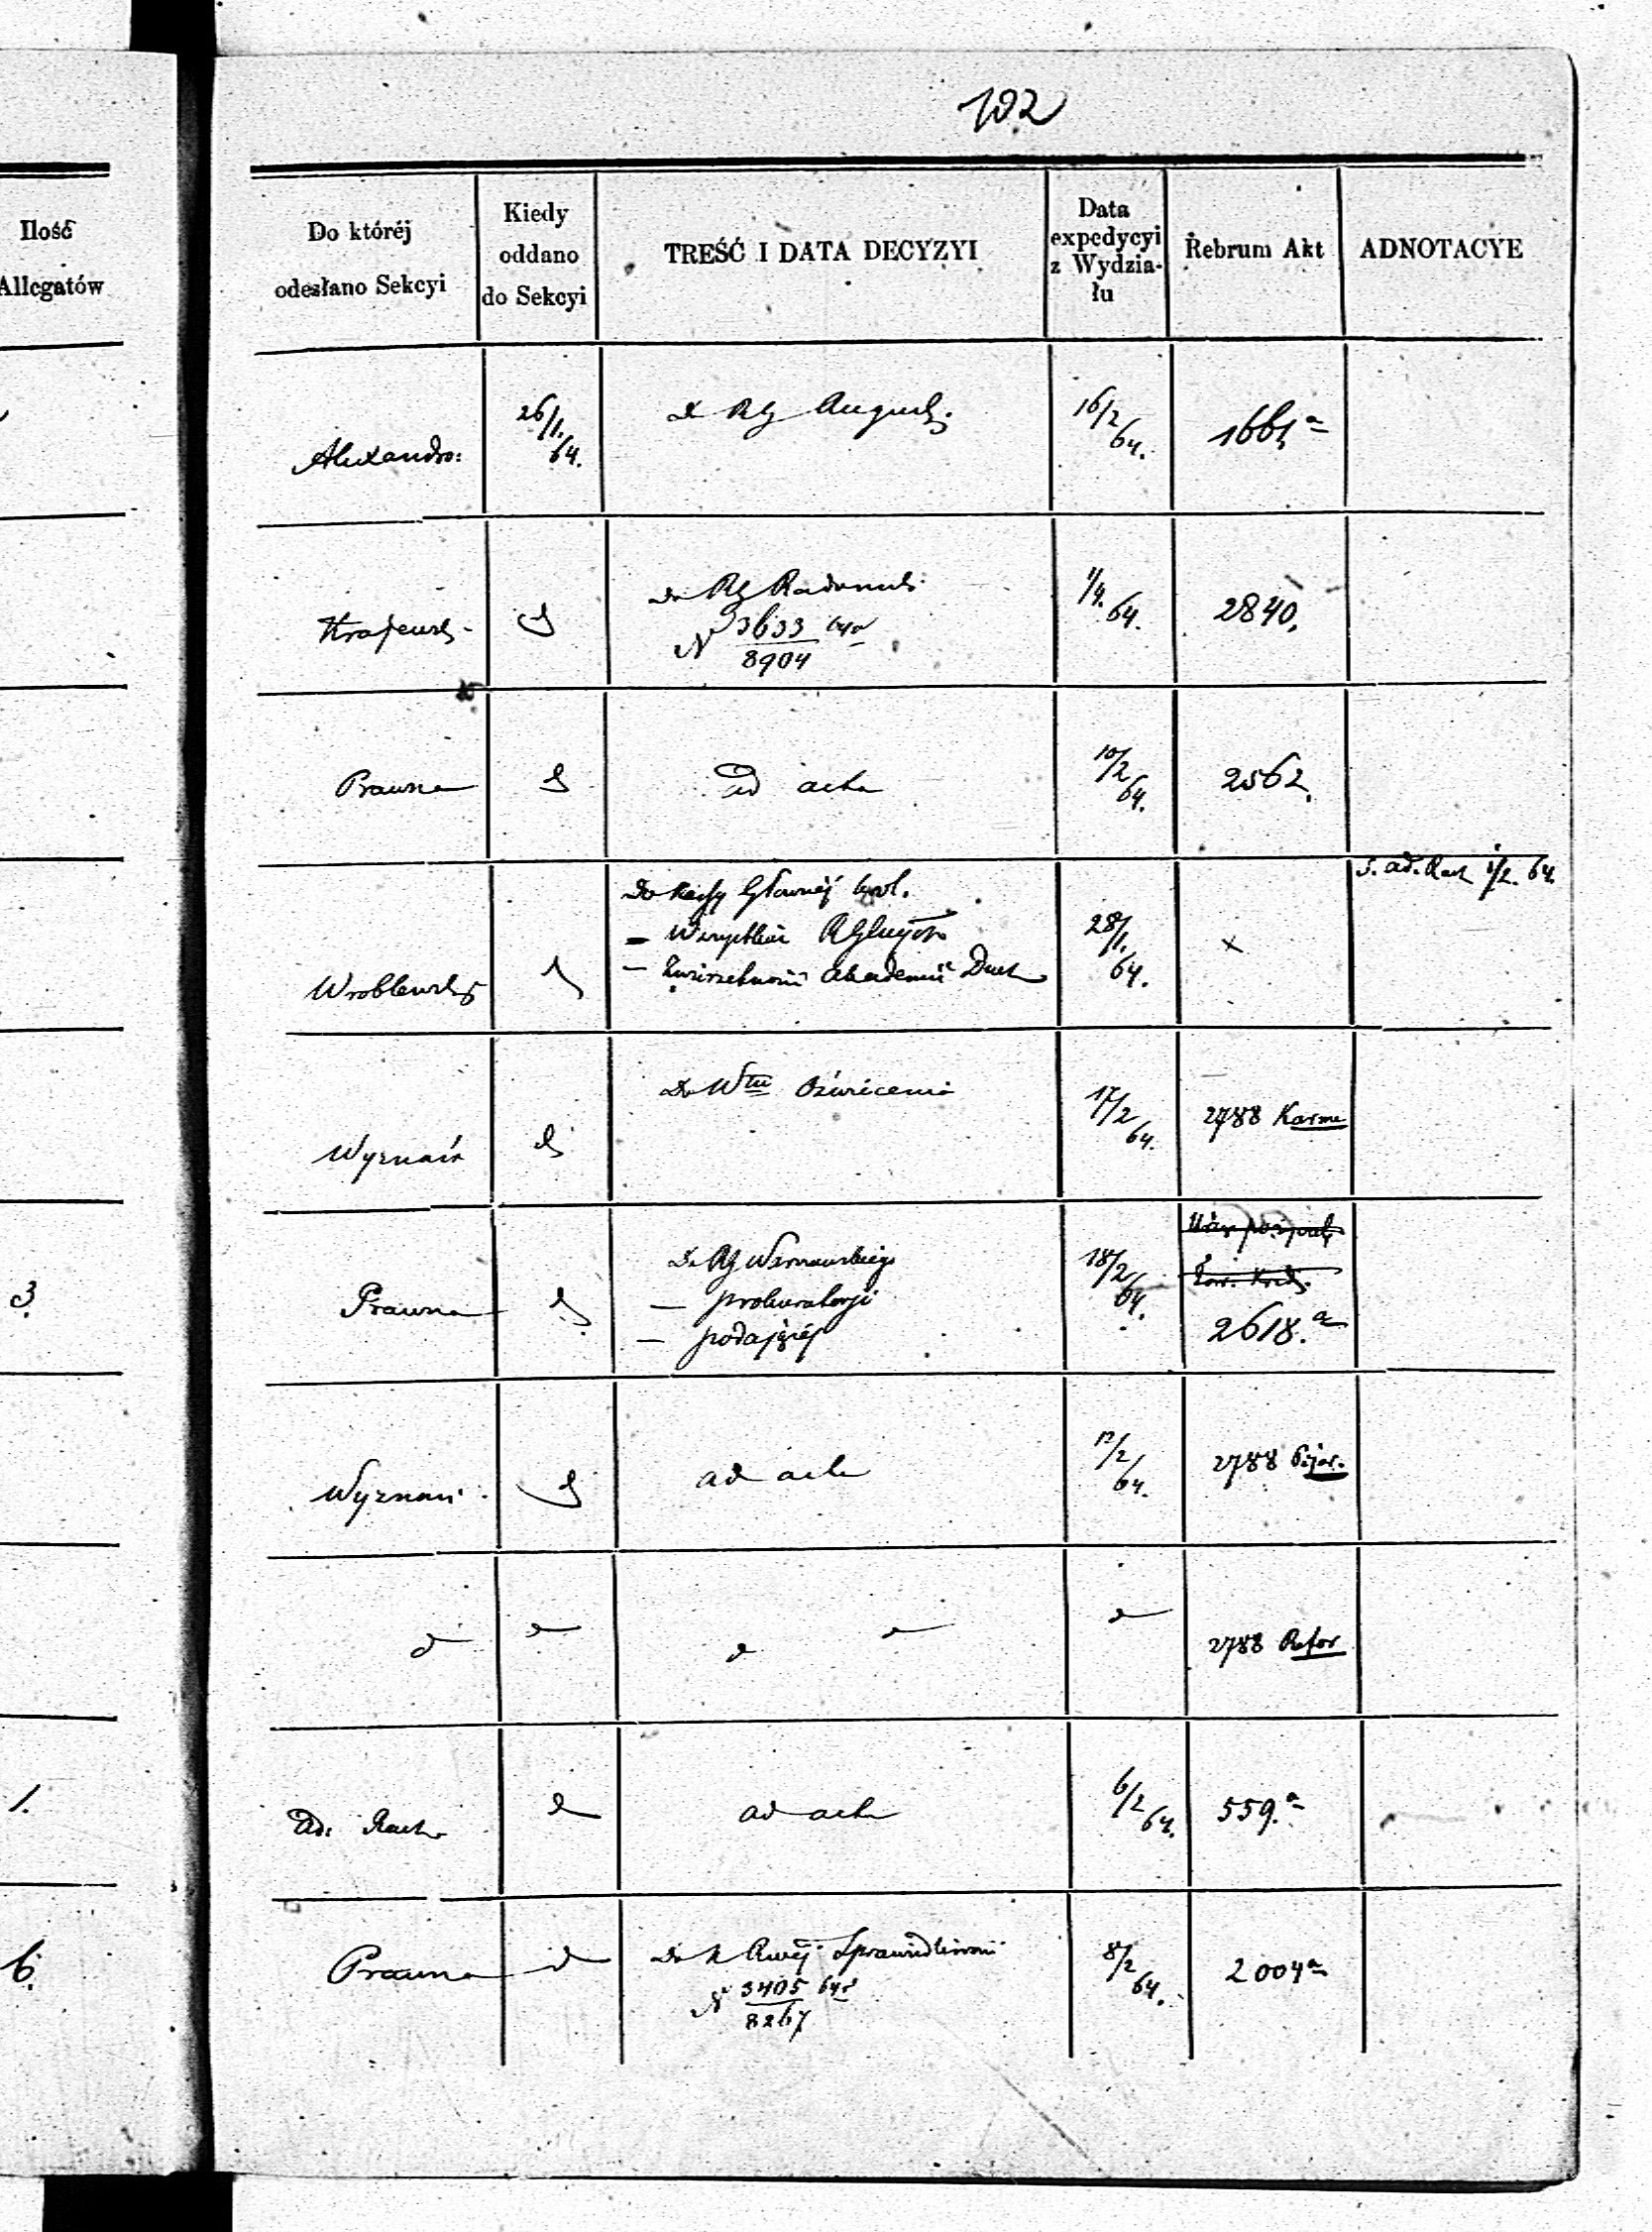 102
Ilość
Allegatów
Do któréj
odesłano Sekcyi
Kiedy
oddano
do Sekcyi
TREŚĆ I DATA DECYZYI
Data
expedycyi
z Wydzia-
łu
Rebrum Akt
ADNOTACYE
Alexandro:
26/1. 64.
RG August.
16/2 64.
1661 a
Krajewsk-
d
Do RG Radomsk.
N 3633 64r
8904
1/4. 64.
2840.
Prawna
d
ad acta
10/2 64.
2562.
Wroblewsk
d
Do Kassy Głównéj Król.
– Wszystkich
– Zwierzchności Akademii Duch
28/1. 64.
x
S. ad. Rach 1/2. 64.
Wyznań
d
Do Włu Oświecenia
17/2 64.
2788 Karme
3.
Prawna
d
Do RG Warszawskiego
– prokuratorji
– podającéj
18/2 64.
Tow. Kred.
2618. a
Wyznań
d
ad acta
12/2 64.
2788 Pijar.
d
d
d d
d
2788 Refor
1.
Ad. Rach.
d
ad acta
6/2 64.
559. a
6.
Prawna
d
Do K Rwéj Sprawiedliwości
N 3405 64r
8267
8/2 64.
2004 a